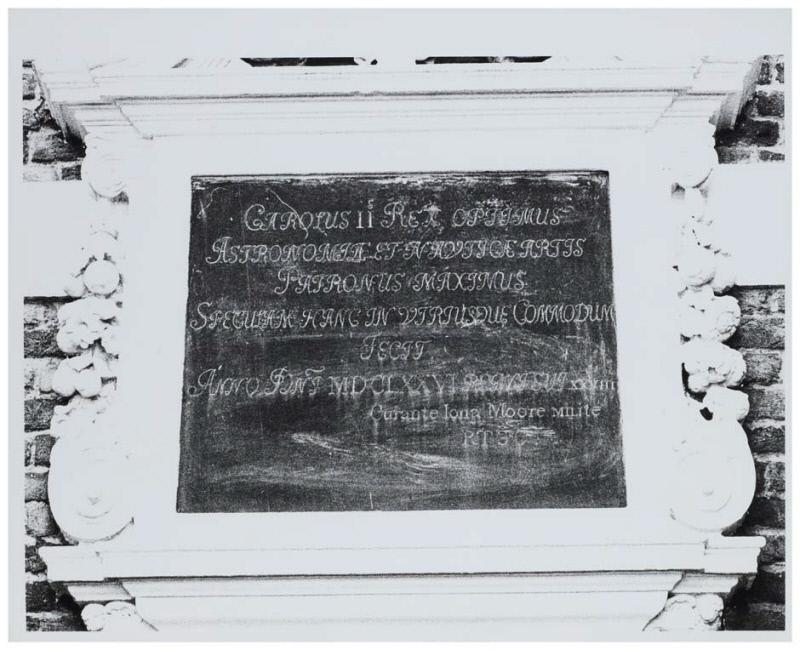 CAROLUS IIs REX OPTIMUS
ASTRONOMIÆ ET NAUTICÆ ARTIS
PATRONUS MAXIMUS
SPECULAM HANC IN UTRIUSQUE COMMODUM
FECIT
ANNO DNI MDCLXXVI REGNI SUI XXVIII
Curante Iona Moore milite
R.T.S.G.